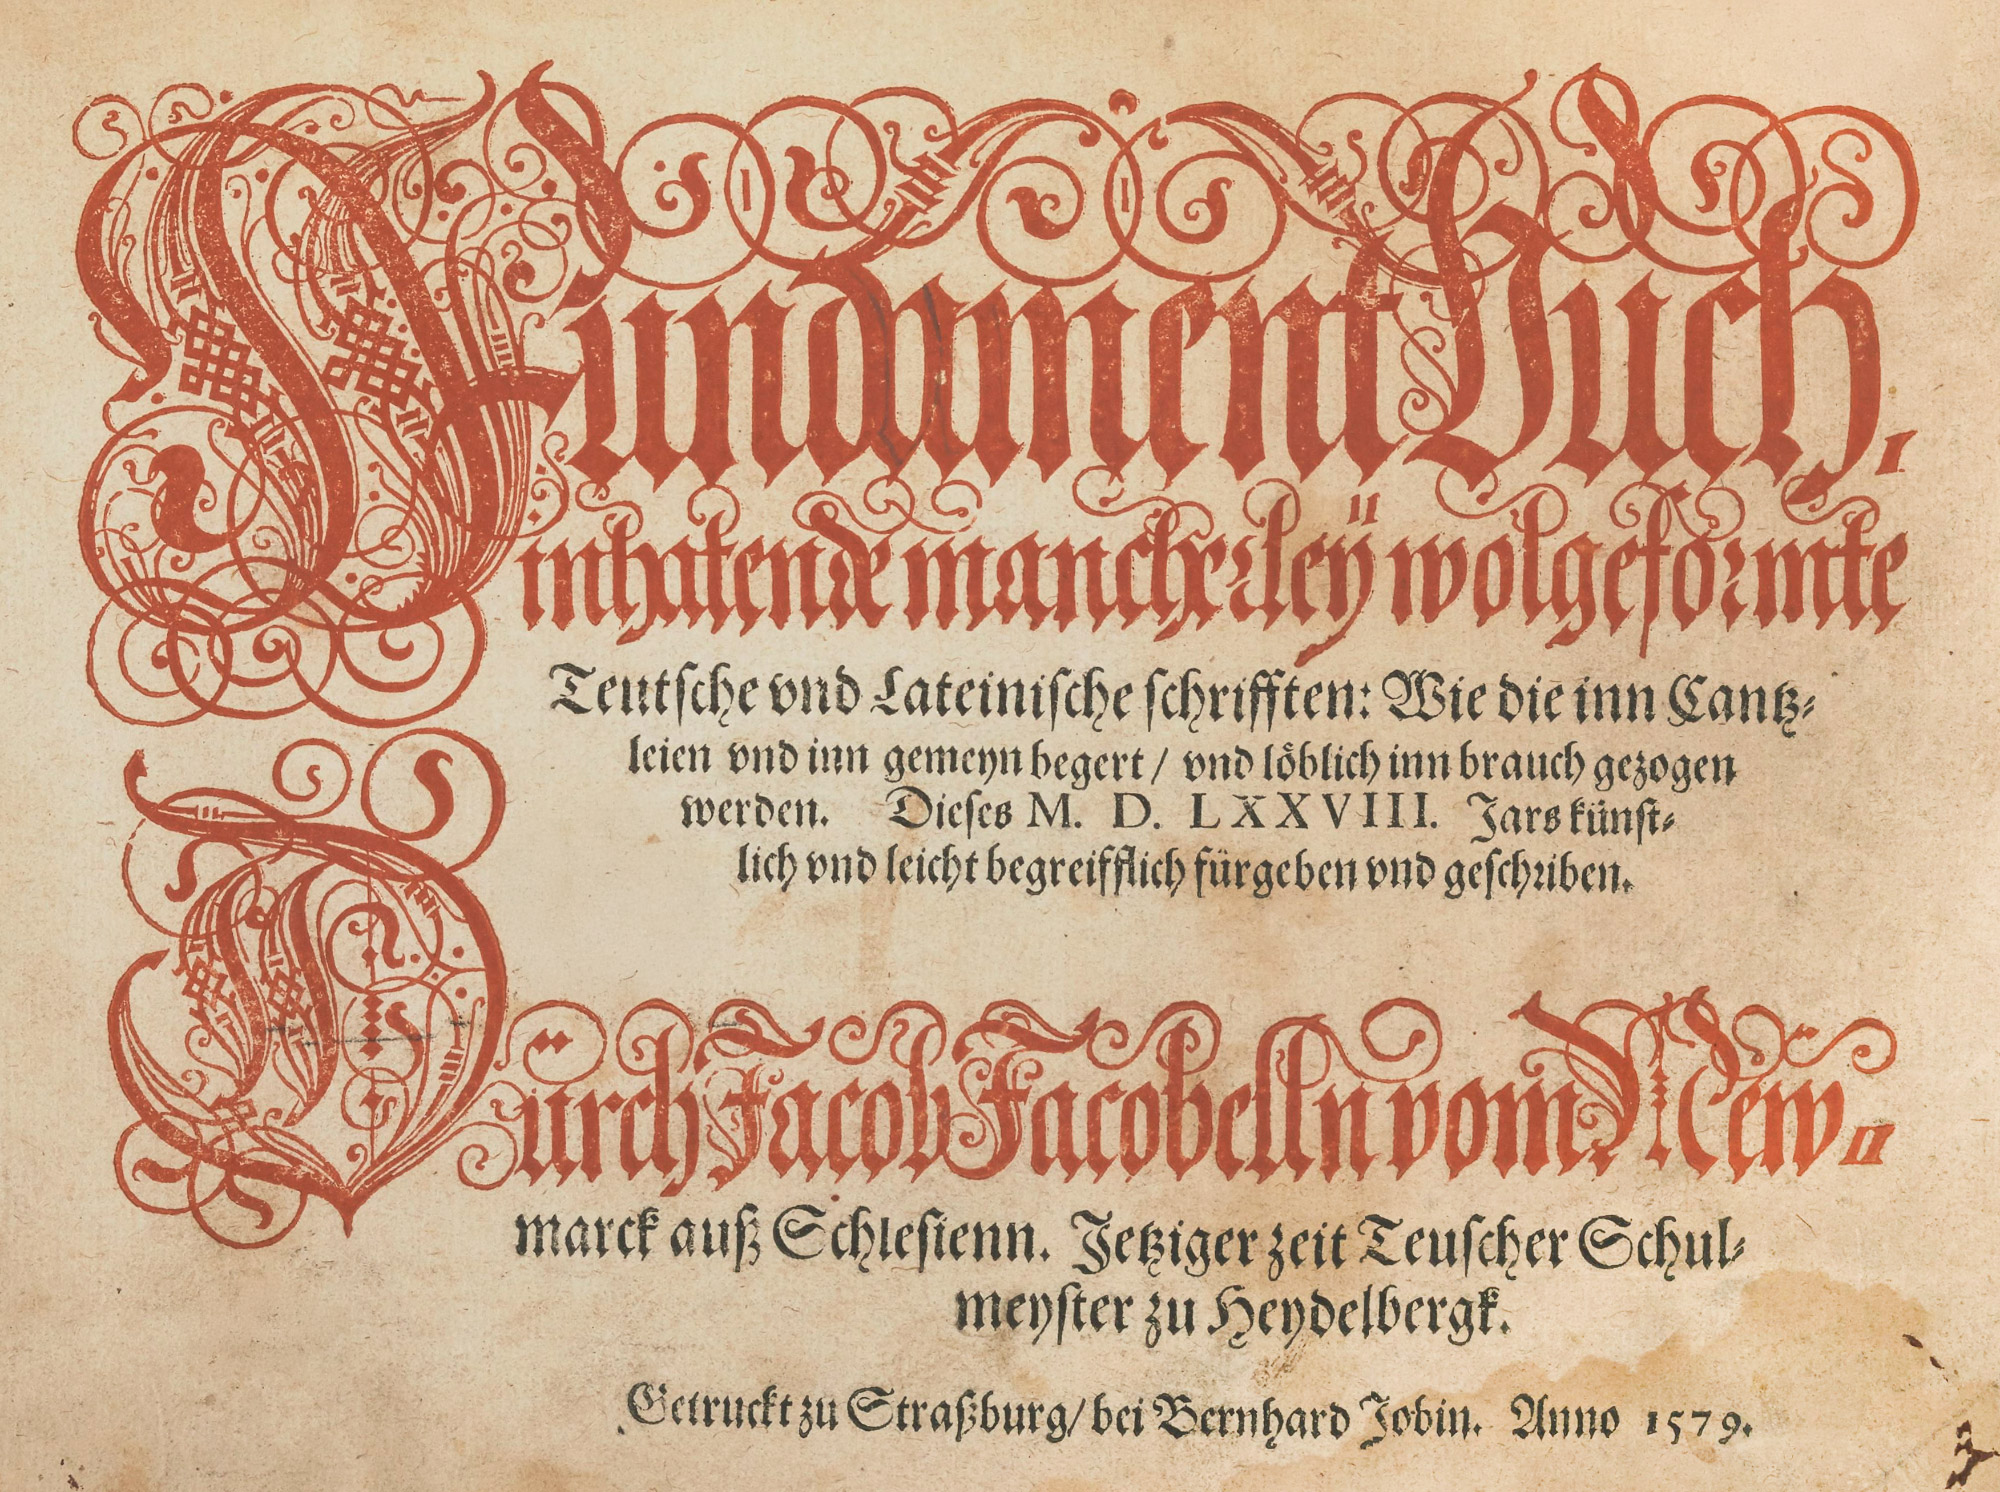 Fundament Buch.
inhaltende mancherleÿ wolgeformte
Teutsche vnd Lateinische schrifften: Wie die inn Cantz⸗
leien vnd inn gemeyn begert / vnd loͤblich inn brauch gezogen
werden. Dieses M. D. LXXVIII. Jars kuͤnst⸗
lich vnd leicht begreifflich fuͤrgeben vnd geschriben.
Durch Jacob Jacobelln vom New⸗
marck auß Schlesienn. Jetziger zeit Teuscher Schul⸗
meyster zu Heydelbergk.
Getruckt zu Straßburg/ bei Bernhard Jobin. Anno 1579.